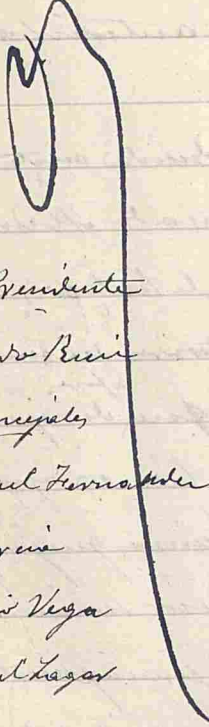 Presidente
dro Ruiz
ncejales
uel Fernandez
rcia
io Vega
el Lagar